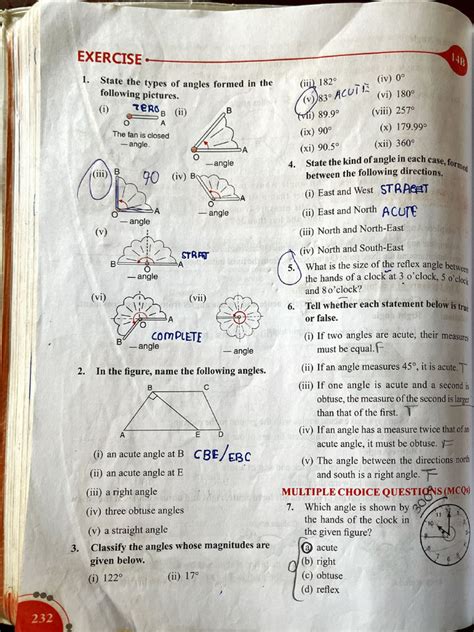 EXERCISE
14B
1. State the types of angles formed in the
following pictures.
(i) ZERO (ii)
B
O A
B
The fan is closed
— angle.
O A
— angle
(iii) 90 (iv)
B
O A
— angle
B
O A
— angle
(v) STRAT
B O A
— angle
(vi) (vii)
A
O
B
COMPLETE
— angle
— angle
2. In the figure, name the following angles.
B C
A E D
(i) an acute angle at B CBE/EBC
(ii) an acute angle at E
(iii) a right angle
(iv) three obtuse angles
(v) a straight angle
3. Classify the angles whose magnitudes are
given below.
(i) 122° (ii) 17°
232
(iii) 182° (iv) 0°
(v) 83° ACUTE (vi) 180°
(vii) 89.9° (viii) 257°
(ix) 90° (x) 179.99°
(xi) 90.5° (xii) 360°
4. State the kind of angle in each case, formed
between the following directions.
(i) East and West
(ii) East and North ACUTE
(iii) North and North-East
(iv) North and South-East
5. What is the size of the reflex angle between
the hands of a clock at 3 o'clock, 5 o'clock
and 8 o'clock?
6. Tell whether each statement below is true
or false.
(i) If two angles are acute, their measures
must be equal. F
(ii) If an angle measures 45°, it is acute. T
(iii) If one angle is acute and a second is
obtuse, the measure of the second is larger
than that of the first. T
(iv) If an angle has a measure twice that of an
acute angle, it must be obtuse. F
(v) The angle between the directions north
and south is a right angle. F
MULTIPLE CHOICE QUESTIONS (MCQs)
7. Which angle is shown by 300
the hands of the clock in
the given figure?
(a) acute
(b) right
(c) obtuse
(d) reflex